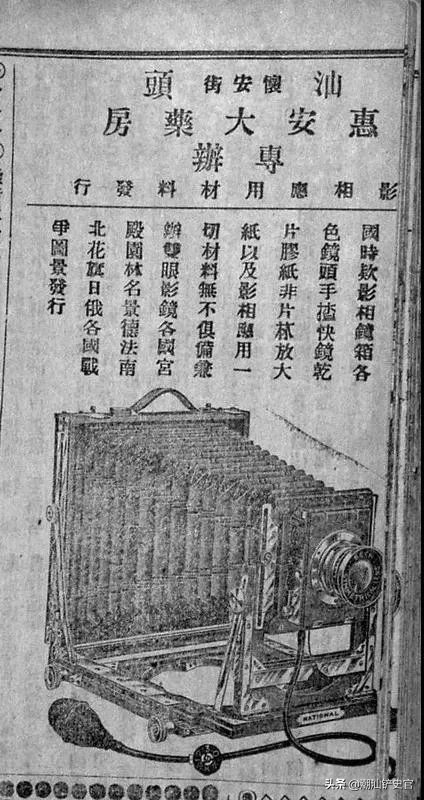 汕懷安街頭
惠安大藥房
專辦
影相應用材料發行
國時欵影相鏡箱各
色鏡頭手快鏡乾
片膠紙非片放大
紙以及影相應用一
切材料無不俱備兼
辦雙眼影鏡各國宮
殿園林名景德法南
北花旗日俄各國戰
爭圖景發行
NATIONAL
头条 @潮汕铲史官